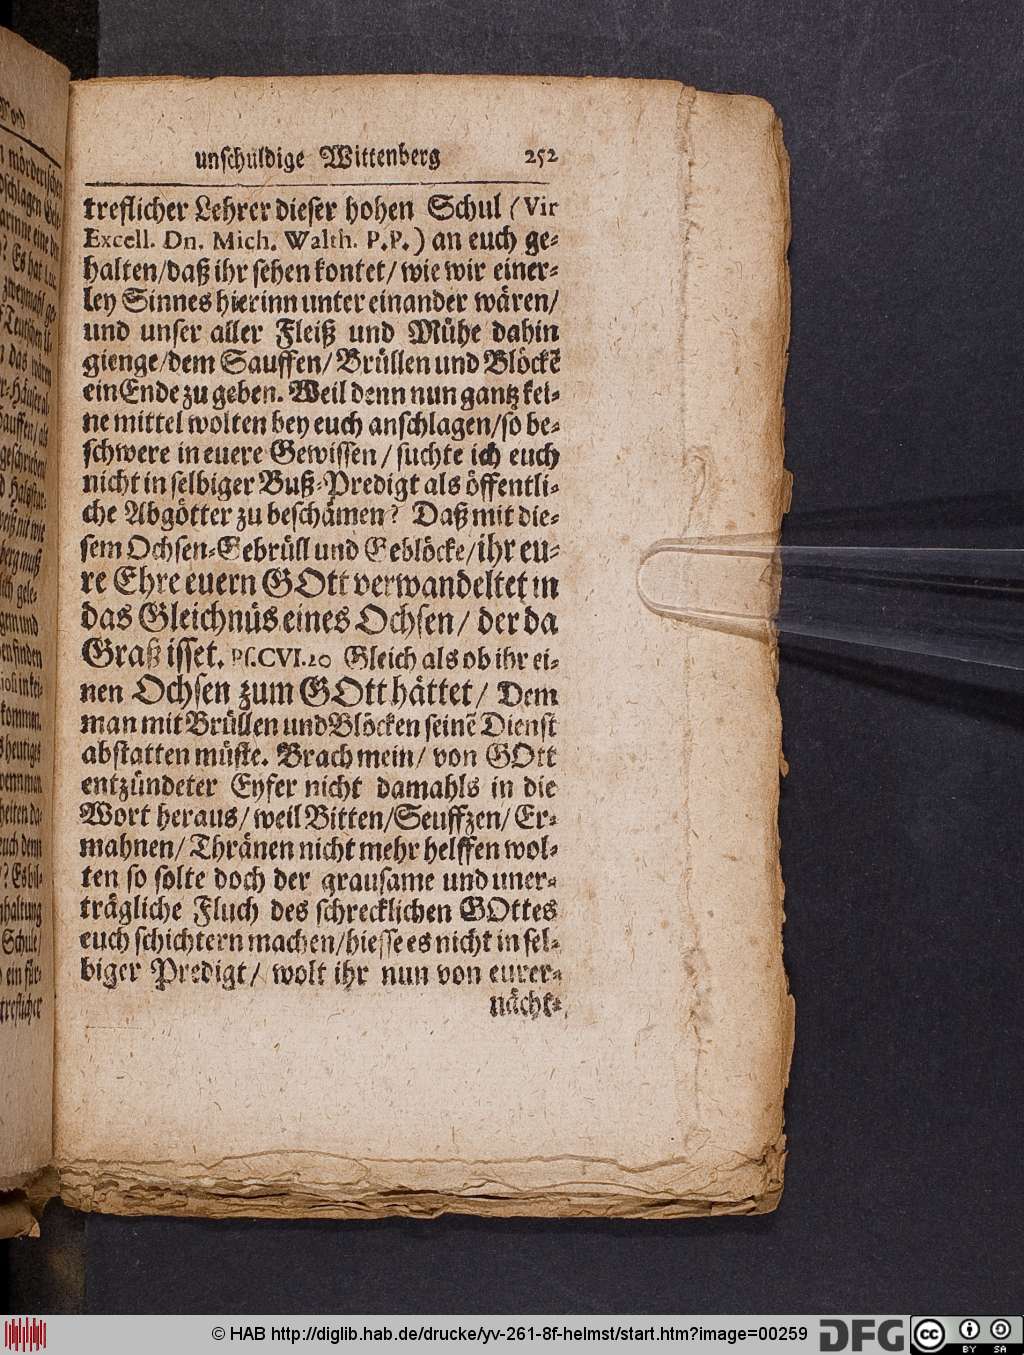 unschuldige Wittenberg 252
treflicher Lehrer dieser hohen Schul (Vir
Excell. Dn. Mich. Walth. P.P.) an euch ge-
halten/daß ihr sehen kontet/ wie wir einer-
ley Sinnes hierinn unter einander wären/
und unser aller Fleiß und Mühe dahin
gienge/dem Sauffen/ Brüllen und Blöckẽ
ein Ende zu geben. Weil denn nun gantz kei-
ne mittel wolten bey euch anschlagen/so be-
schwere in euere Gewissen/ suchte ich euch
nicht in selbiger Buß-Predigt als öffentli-
che Abgötter zu beschämen? Daß mit die-
sem Ochsen-Gebrüll und Geblöcke/ihr eu-
re Ehre euern GOtt verwandeltet in
das Gleichnüs eines Ochsen/ der da
Graß isset. Ps.CVI.20 Gleich als ob ihr ei-
nen Ochsen zum GOtt hättet/ Dem
man mit Brüllen und Blöcken seinẽ Dienst
abstatten müste. Brach mein/ von GOtt
entzündeter Eyfer nicht damahls in die
Wort heraus/ weil Bitten/Seuffzen/ Er-
mahnen/ Thränen nicht mehr helffen wol-
ten so solte doch der grausame und uner-
trägliche Fluch des schrecklichen GOttes
euch schichtern machen/hiesse es nicht in sel-
biger Predigt/ wolt ihr nun von eurer-
nächt-
© HAB http://diglib.hab.de/drucke/yv-261-8f-helmst/start.htm?image=00259
DFG
cc BY SA